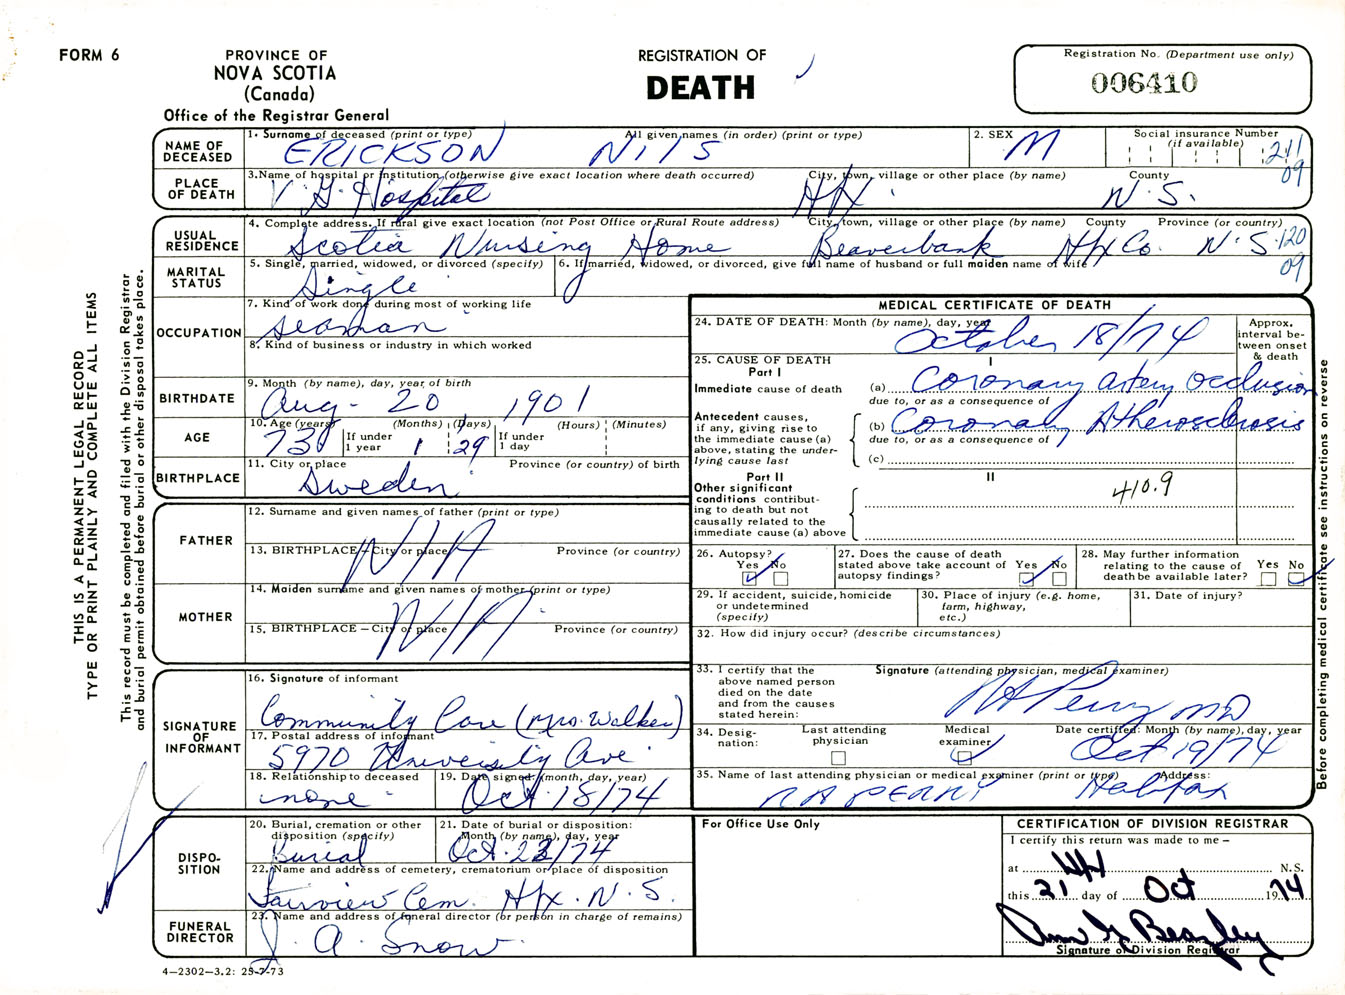 FORM 6
PROVINCE OF
NOVA SCOTIA
(Canada)
Office of the Registrar General
REGISTRATION OF
DEATH
Registration No. (Department use only)
006410
THIS IS A PERMANENT LEGAL RECORD
TYPE OR PRINT PLAINLY AND COMPLETE ALL ITEMS
This record must be completed and filed with the Division Registrar
and burial permit obtained before burial or other disposal takes place.
NAME OF
DECEASED
1. Surname of deceased (print or type) All given names (in order) (print or type)
ERICKSON Nils
2. SEX
M
Social insurance Number
(if available)
211
09
PLACE
OF DEATH
3. Name of hospital or institution (otherwise give exact location where death occurred) City, town, village or other place (by name) County
V.G. Hospital Hfx. N.S.
USUAL
RESIDENCE
4. Complete address. If rural give exact location (not Post Office or Rural Route address) City, town, village or other place (by name) County Province (or country)
Scotia Nursing Home Beaverbank Hfx Co. N.S. 120
09
MARITAL
STATUS
5. Single, married, widowed, or divorced (specify)
Single
6. If married, widowed, or divorced, give full name of husband or full maiden name of wife
OCCUPATION
7. Kind of work done during most of working life
seaman
8. Kind of business or industry in which worked
BIRTHDATE
9. Month (by name), day, year of birth
Aug - 20, 1901
AGE
10. Age (years) (Months) (Days) (Hours) (Minutes)
73 If under 1 year 1 29 If under 1 day
BIRTHPLACE
11. City or place Province (or country) of birth
Sweden
FATHER
12. Surname and given names of father (print or type)
13. BIRTHPLACE – City or place Province (or country)
N/A
MOTHER
14. Maiden surname and given names of mother (print or type)
15. BIRTHPLACE – City or place Province (or country)
N/A
SIGNATURE
OF
INFORMANT
16. Signature of informant
Community Care (Mrs. Walker)
17. Postal address of informant
5970 University Ave
18. Relationship to deceased
none
19. Date signed: (month, day, year)
Oct. 18/74
DISPO-
SITION
20. Burial, cremation or other
disposition (specify)
Burial
21. Date of burial or disposition:
Month (by name), day, year
Oct. 23/74
22. Name and address of cemetery, crematorium or place of disposition
Fairview Cem. Hfx. N.S.
FUNERAL
DIRECTOR
23. Name and address of funeral director (or person in charge of remains)
J. A. Snow.
4—2302—3.2: 25-7-73
MEDICAL CERTIFICATE OF DEATH
24. DATE OF DEATH: Month (by name), day, year
October 18/74
Approx.
interval be-
tween onset
& death
25. CAUSE OF DEATH
Part I
I
Immediate cause of death (a) Coronary artery occlusion
due to, or as a consequence of
Antecedent causes,
if any, giving rise to
the immediate cause (a)
above, stating the under-
lying cause last
(b) Coronary Atherosclerosis
due to, or as a consequence of
(c)
Part II
II
Other significant
conditions contribut-
ing to death but not
causally related to the
immediate cause (a) above
410.9
26. Autopsy?
Yes No
27. Does the cause of death
stated above take account of
autopsy findings?
Yes No
28. May further information
relating to the cause of
death be available later?
Yes No
29. If accident, suicide, homicide
or undetermined
(specify)
30. Place of injury (e.g. home,
farm, highway,
etc.)
31. Date of injury?
32. How did injury occur? (describe circumstances)
33. I certify that the
above named person
died on the date
and from the causes
stated herein:
Signature (attending physician, medical examiner)
RA Perry MD
34. Desig-
nation:
Last attending
physician
Medical
examiner
Date certified: Month (by name), day, year
Oct 19/74
35. Name of last attending physician or medical examiner (print or type) Address:
RA PERRY Halifax
Before completing medical certificate see instructions on reverse
For Office Use Only
CERTIFICATION OF DIVISION REGISTRAR
I certify this return was made to me –
at Hfx N.S.
this 21 day of Oct 1974
Signature of Division Registrar